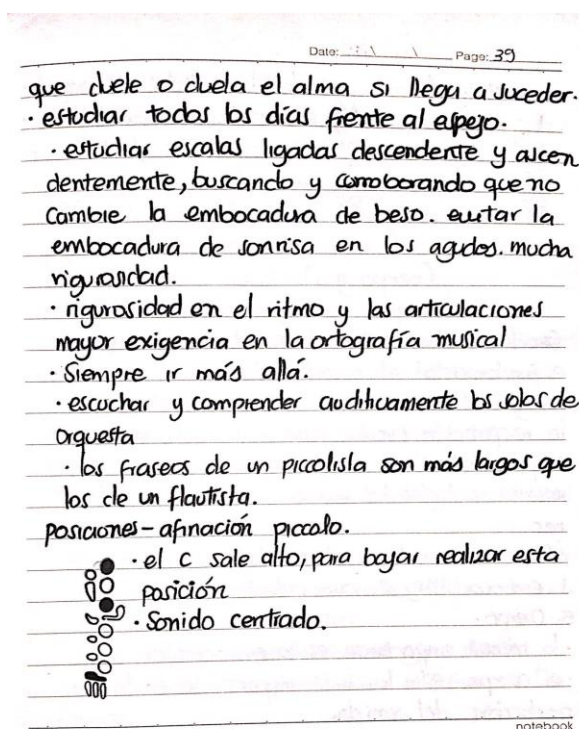 Date: \ \ Page: 39
que duele o duela el alma si llega a suceder.
· estudiar todos los días frente al espejo.
· estudiar escalas ligadas descendente y ascen
dentemente, buscando y corroborando que no
cambie la embocadura de beso. evitar la
embocadura de sonrisa en los agudos. mucha
rigurosidad.
· rigurosidad en el ritmo y las articulaciones
mayor exigencia en la ortografía musical
· Siempre ir más allá.
· escuchar y comprender auditivamente los solos de
orquesta
· los fraseos de un piccolista son más largos que
los de un flautista.
posiciones - afinación piccolo.
· el C sale alto, para bajar realizar esta
posición
· Sonido centrado.
notebook